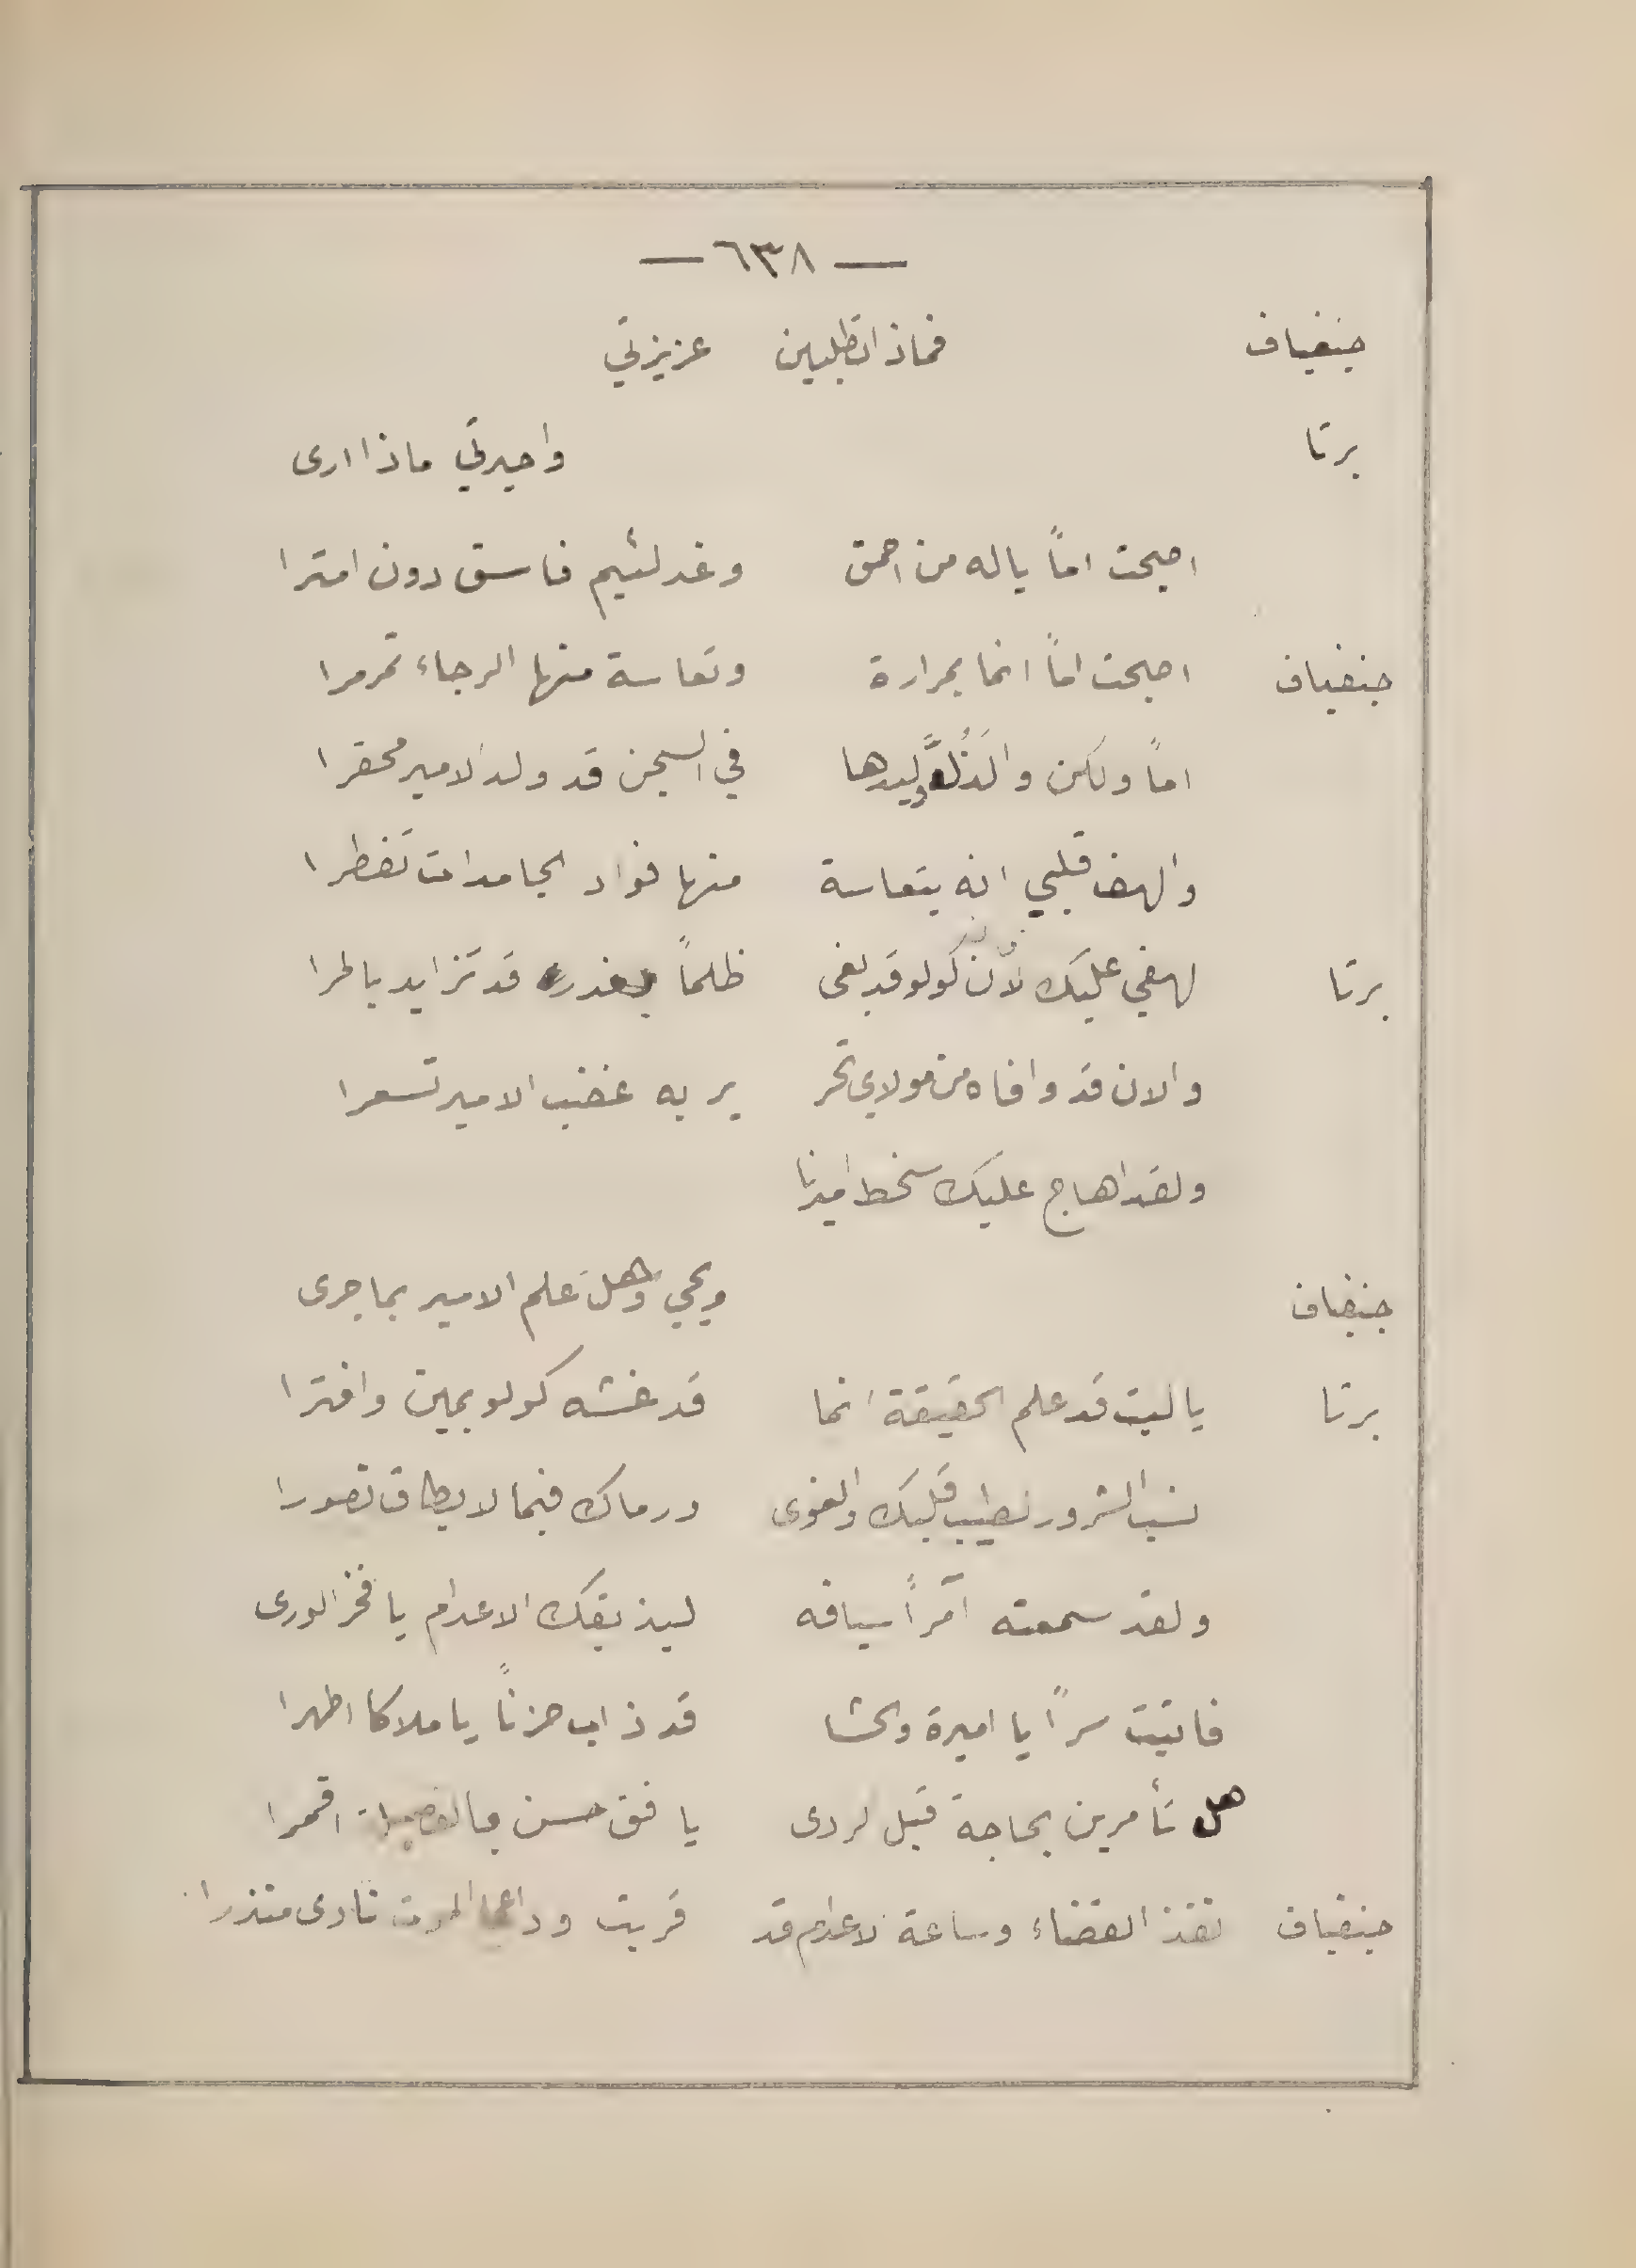 — ٦٣٨ —
جنفياف فماذا تطلبين عزيزتي
برتا واحيرتي ماذا ارى
اصبحت اماً ياله من احمق وغد لئيم فاسق دون امترا
جنفياف اصبحت اماً انما بمرارة وتعاسة منها الرجاء تمرمرا
اماً ولكن والذُلَّ وليدها في السجن قد ولد الامير محقرا
والهف قلبي انه بتعاسة منها فواد الجامدات تفطرا
برتا لهفي عليك لأن كولو قد بغى ظلماً بغدر قد تزايد بالمرا
والان قد وافاه من مولاي تحر ير به غضب الامير تسعرا
ولقد اهاج عليك سخط اميرنا
جنفياف ويحي وهل علم الامير بما جرى
برتا ياليت قد علم الحقيقة انما قد غشه كولو بمين وافترا
نسب الشرور لطيب قلبك والغوى ورماك فيما لا يطاق تصورا
ولقد سمعته آمراً سيافه ليذيقك الاعدام يا فخر الورى
فاتيت سراً يا اميرة والحشا قد ذاب حزناً يا ملاكا اطهرا
هل تأمرين بحاجة قبل لردى يا فق حسن اقمرا
جنفياف نفذ القضاء وساعة لاعدام قد قربت وداعي الموت نادى منذرا